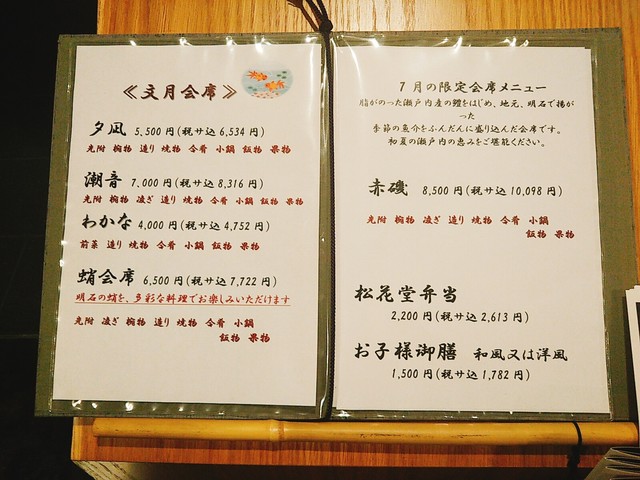 ≪文月会席≫
夕凪 5,500円(税サ込 6,534円)
先附 椀物 造り 焼物 合肴 小鍋 飯物 果物
潮音 7,000円(税サ込 8,316円)
先附 椀物 凌ぎ 造り 焼物 合肴 小鍋 飯物 果物
わかな 4,000円(税サ込 4,752円)
前菜 造り 焼物 合肴 小鍋 飯物 果物
蛸会席 6,500円(税サ込 7,722円)
明石の蛸を、多彩な料理でお楽しみいただけます
先附 凌ぎ 椀物 造り 焼物 合肴 小鍋
飯物 果物
7月の限定会席メニュー
脂がのった瀬戸内産の鱧をはじめ、地元、明石で揚が
った
季節の魚介をふんだんに盛り込んだ会席です。
初夏の瀬戸内の恵みをご堪能ください。
赤磯 8,500円(税サ込 10,098円)
先附 椀物 凌ぎ 造り 焼物 合肴 小鍋
飯物 果物
松花堂弁当
2,200円(税サ込 2,613円)
お子様御膳 和風又は洋風
1,500円(税サ込 1,782円)